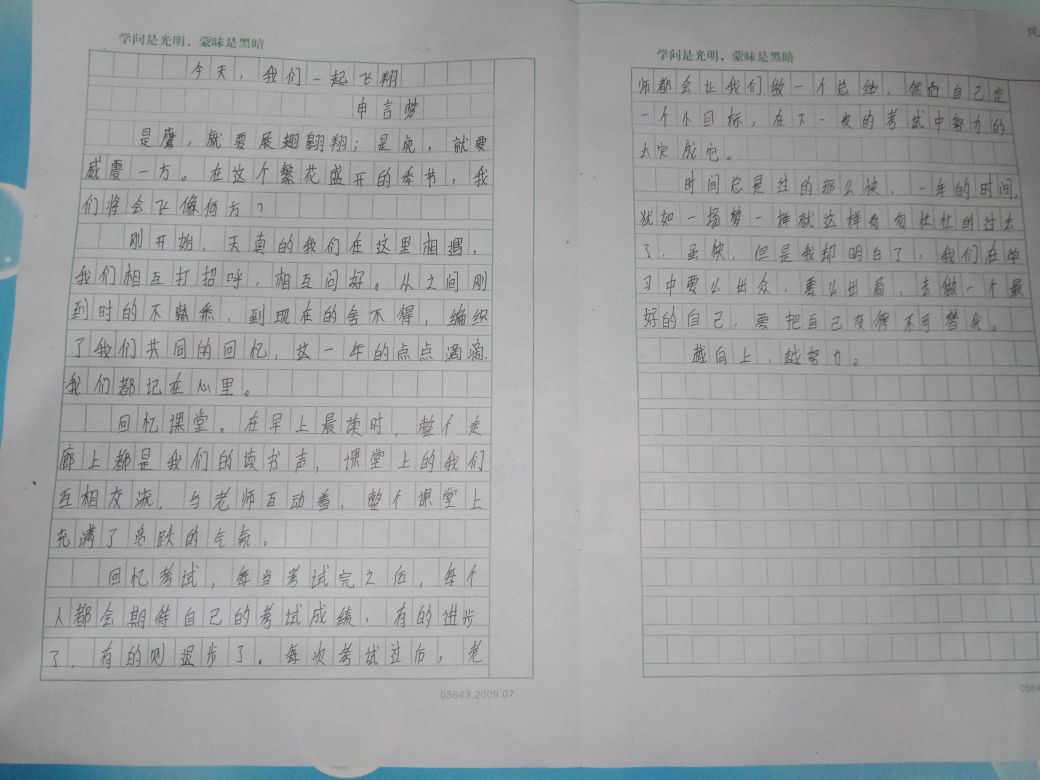 学问是光明，蒙昧是黑暗
今天，我们一起飞翔
申言梦
是鹰，就要展翅翱翔；是虎，就要
威震一方。在这个繁花盛开的季节，我
们将会飞像何方？
刚开始，天真的我们在这里相遇，
我们相互打招呼，相互问好。从之间刚
到时的不熟悉，到现在的舍不得，编织
了我们共同的回忆，这一年的点点滴滴，
我们都记在心里。
回忆课堂。在早上晨读时，整个走
廊上都是我们的读书声，课堂上的我们
互相交流，与老师互动着，整个课堂上
充满了活跃的气氛。
回忆考试，每当考试完之后，每个
人都会期待自己的考试成绩，有的进步
了，有的则退步了。每次考试过后，老
05643.2009.07
学问是光明，蒙昧是黑暗
师都会让我们做一个总结，然后自己定
一个小目标，在下一次的考试中努力的
去完成它。
时间总是过的那么快，一年的时间，
犹如一场梦一样就这样匆匆忙忙的过去
了，虽快，但是我却明白了，我们在学
习中要么出众，要么出局，去做一个最
好的自己，要把自己变得不可替代。
越向上，越努力。